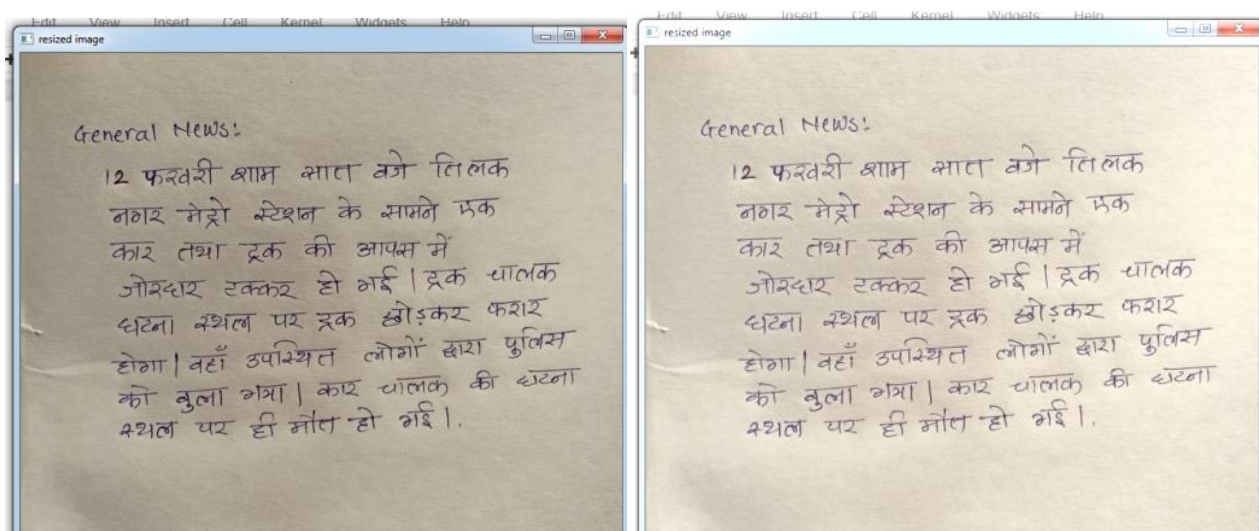 Edit View Insert Cell Kernel Widgets Help
resized image
General News:
12 फरवरी शाम सात बजे तिलक
नगर मेट्रो स्टेशन के सामने एक
कार तथा ट्रक की आपस में
जोरदार टक्कर हो गई | ट्रक चालक
घटना स्थल पर ट्रक छोड़कर फरार
होगा | वहाँ उपस्थित लोगों द्वारा पुलिस
को बुला गया | कार चालक की घटना
स्थल पर ही मौत हो गई |.
Edit View Insert Cell Kernel Widgets Help
resized image
General News:
12 फरवरी शाम सात बजे तिलक
नगर मेट्रो स्टेशन के सामने एक
कार तथा ट्रक की आपस में
जोरदार टक्कर हो गई | ट्रक चालक
घटना स्थल पर ट्रक छोड़कर फरार
होगा | वहाँ उपस्थित लोगों द्वारा पुलिस
को बुला गया | कार चालक की घटना
स्थल पर ही मौत हो गई |.